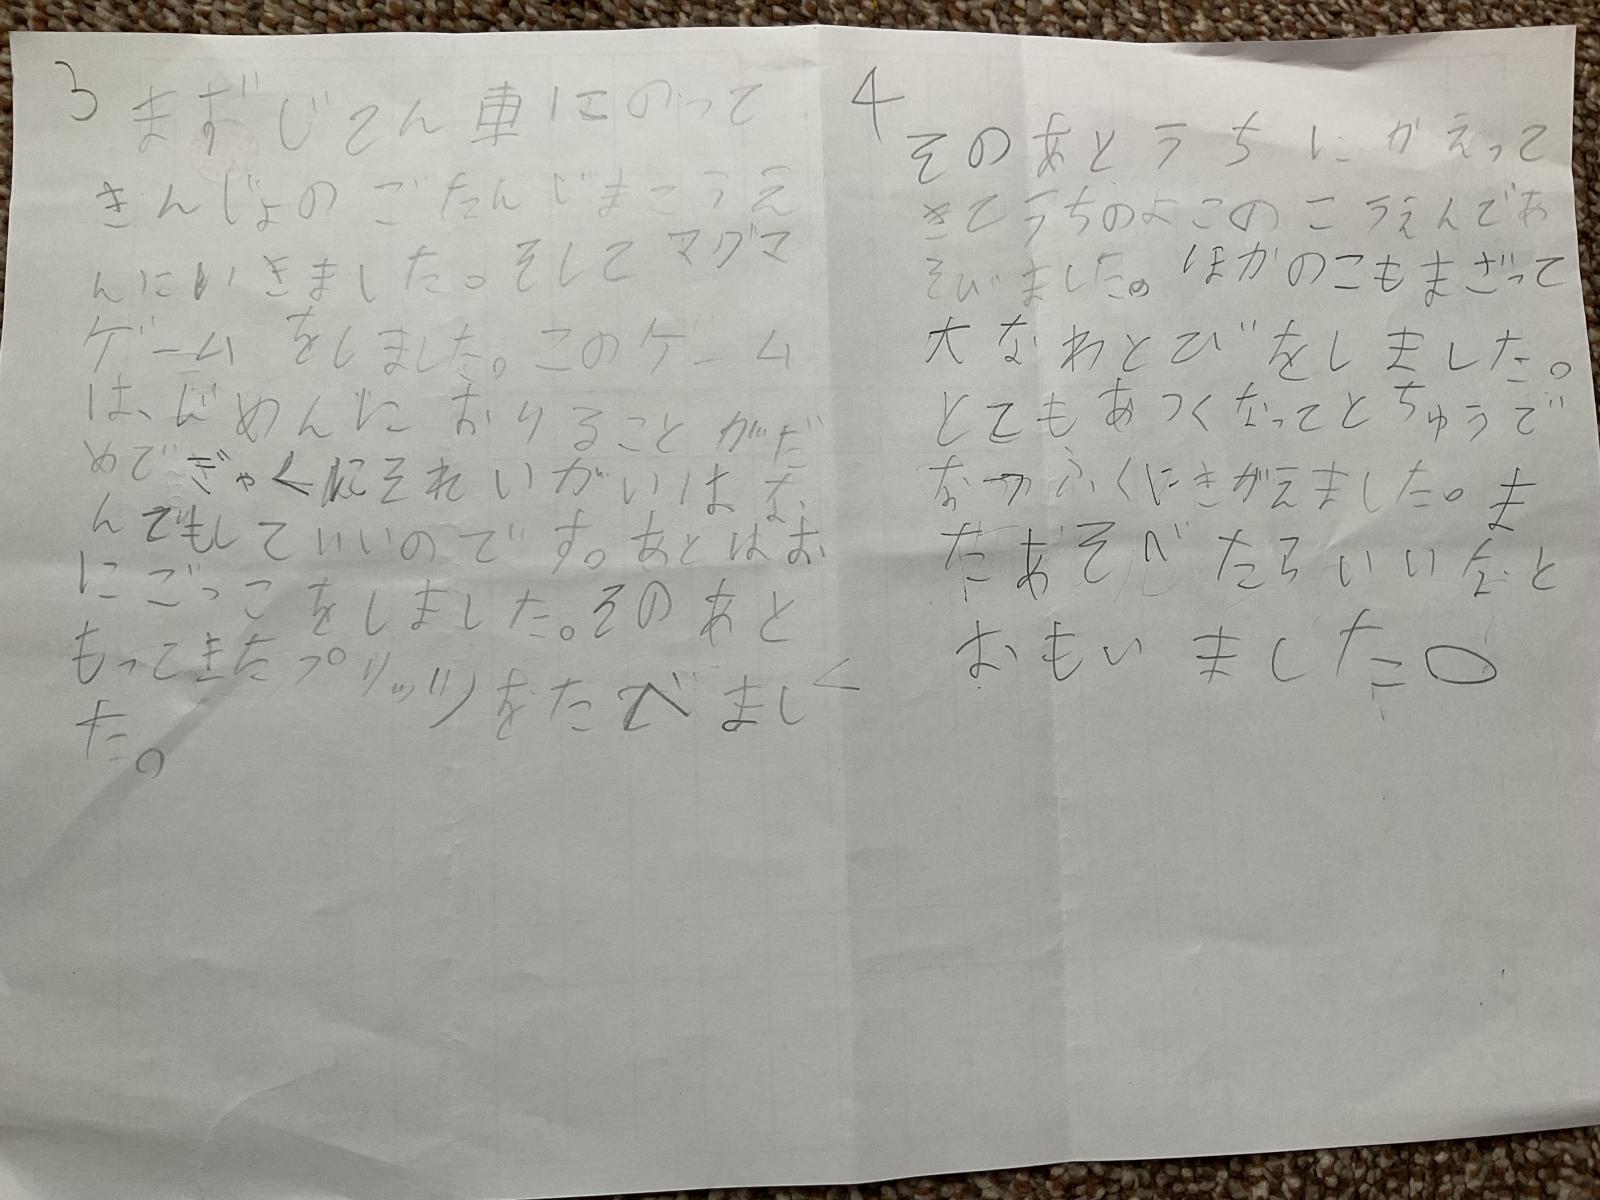 3
まずじてん車にのって
きんじょのごたんじまこうえ
んにいきました。そしてマグマ
ゲームをしました。このゲーム
は、じめんにおりることがだ
めでぎゃくにそれいがいはな
んでもしていいのです。あとはお
にごっこをしました。そのあと
もってきたプリッツをたべまし
た。
4
そのあとうちにかえって
きてうちのよこのこうえんであ
そびました。ほかのこもまざって
大なわとびをしました。
とてもあつくなってとちゅうで
なつふくにきがえました。ま
たあそべたらいいなと
おもいました。